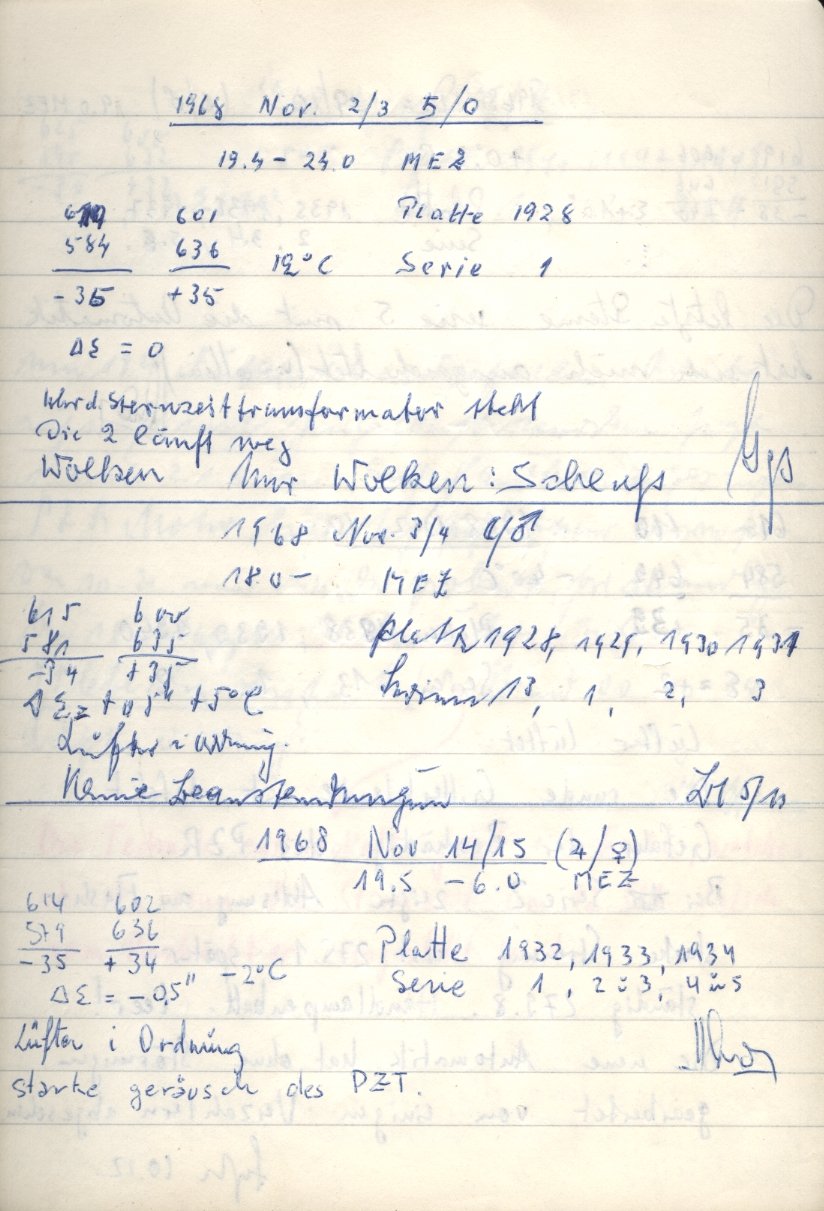 1968 Nov. 2/3 ♄/☉
19.4 – 24.0 MEZ
619 601 Platte 1928
584 636 12°C Serie 1
-35 +35
Δε = 0
steht
Die 2 läuft weg
Wolken Nur Wolken:
1968 Nov. 3/4 ☉/☾
18.0 – MEZ
615 600
581 635 Platte 1928, 1929, 1930 1931
-34 +35 Serien 13, 1, 2, 3
Δε = +0,5" +5°C
Lüfter i Ordnung.
Keine Beanstandungen 5/11
1968 Nov 14/15 (♃/♀)
19.5 – 6.0 MEZ
614 602
579 636 Platte 1932, 1933, 1934
-35 +34 -2°C Serie 1, 2 u 3, 4 u 5
Δε = -0,5"
Lüfter i Ordnung
starke geräusch des PZT.